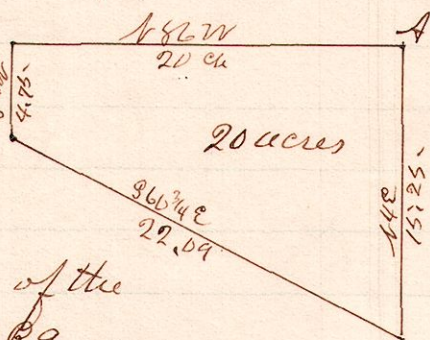 N86W
A
20 ch
4.75
20 acres
S60¾E
22.09
N4E
15.25
of the